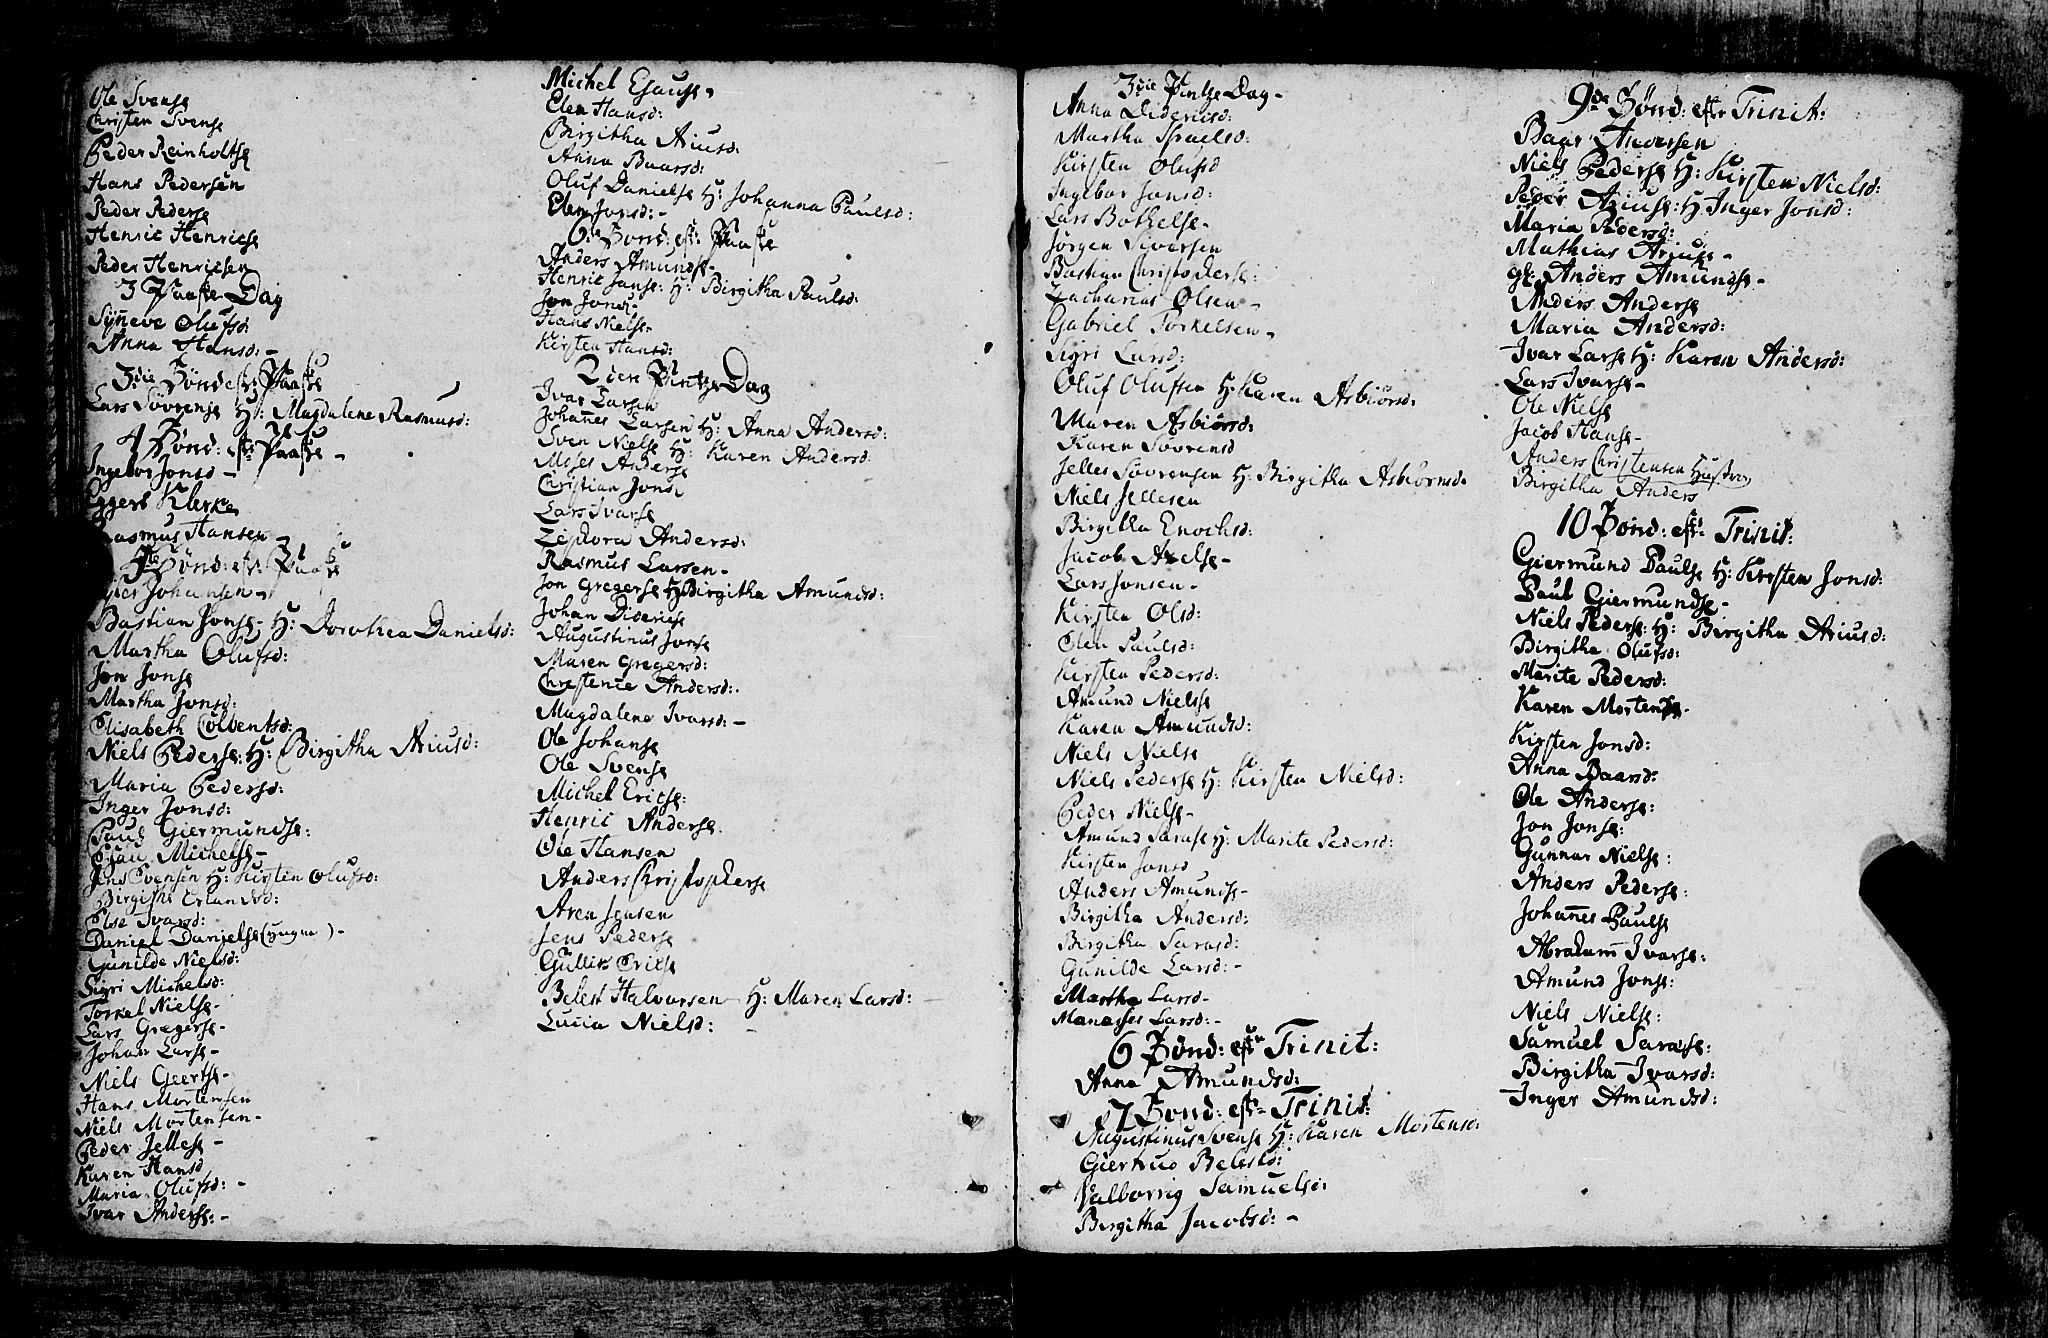 Ole Svense
Christen Svense
Peder Reinholtse
Hans Pedersen
Peder Pederse
Henric Henricse
Peder Henricsen
3 Paaske Dag
Synneve Olufsd:
Anna Hansd: -
3die Sønd: eft: Paaske
Lars Søvrense H: Magdalene Rasmusd:
4 Sønd: eft: Paaske -
Ingebor Jonsd -
Eggert Klerke
Rasmus Hansen -
5te Sønd: eft: Paaske
Johansen -
Bastian Jonse - H: Dorothea Danielsd:
Martha Olufsd:
Jon Jonse
Martha Jonsd:
Elisabeth Colbentsd:
Niels Pederse: H: Birgitha Ariusd:
Maria Pedersd:
Inger Jonsd:
Paul Giermundse:
Esau Michelse -
Jens Svensen H: Kirsten Olufsd:
Birgithe Erlandsd:
Else Ivarsd:
Daniel Danielse (yngre) -
Gunilde Nielsd:
Sigri Michelsd:
Torkel Nielse -
Lars Gregerse -
Johan Larse -
Niels Geertse -
Hans Mortensen
Niels Mortensen -
Peder Jellese -
Karen Hansd
Maria Olufsd: -
Ivar Anderse: -
Michel Esause -
Elen Hansd:
Birgitha Ariusd:
Anna Baarsd:
Oluf Danielse H: Johanna Paulsd:
Elen Jonsd: -
6te Sønd: eft: Paaske
Anders Amundse -
Henric Janse: H: Birgitha Paulsd:
Jon Jonse -
Hans Nielse -
Kirsten Hansd:
2den Pintze Dag
Ivar Larsen
Johannes Larsen H: Anna Andersd:
Sven Nielse H: Karen Andersd:
Moses Anderse
Christian Jonse
Lars Ivarse
Zephora Andersd:
Rasmus Larsen -
Jon Gregerse H: Birgitha Amundsd:
Johan Didericse
Augustinus Jonse
Maren Gregersd:
Christence Andersd:
Magdalene Ivarsd: -
Ole Johanse
Ole Svense
Michel Ericse:
Henric Anderse
Ole Hansen
Anders Christopherse
Aren Jensen
Jens Pederse
Gullik Ericse
Belest Halvorsen H: Maren Larsd:
Lucia Nielsd: -
3die Pintze Dag -
Anna Didericsd:
Martha Israelsd:
Kirsten Olufsd
Ingebor Jonsd:
Lars Botkelse -
Jørgen Siversen
Bastian Christopherse:
Zacharias Olsen -
Gabriel Torkelsen -
Sigri Larsd:
Oluf Olufsen H: Karen Asbiørsd:
Maren Asbiørsd:
Karen Søvrensd
Jelles Søvrensen H: Birgitha Asbiørnsd:
Niels Jellesen
Birgitha Enochsd:
Jacob Axelse -
Lars Jonsen -
Kirsten Olsd:
Elen Paulsd:
Kirsten Pedersd:
Amund Nielse
Karen Amundsd:
Niels Nielse
Niels Pederse H: Kirsten Nielsd:
Peder Nielse -
Amund Sarase H: Marite Pedersd:
Kirsten Jonsd
Anders Amundse -
Birgitha Andersd:
Birgitha Sarasd:
Gunilde Larsd: -
Martha Larsd -
Manasses Larsd: -
6 Sønd: eftr Trinit:
Anna Amundsd:
7 Sønd: eftr Trinit:
Augustinus Svense H: Karen Mortensd:
Giertrud Belestd:
Valborrig Samuelsd:
Birgitha Jacobsd: -
9de Sønd: eftr Trinit:
Baar Andersen
Niels Pederse H: Kirsten Nielsd:
Peder Ariuse: H Inger Jonsd:
Maria Pedersd:
Mathias Ariuse -
gl: Anders Amundse -
Anders Anderse
Maria Andersd:
Ivar Larse H: Karen Andersd:
Lars Ivarse -
Ole Nielse
Jacob Hanse -
Anders Christensen Hustroe
Birgitha Anders
10 Sønd: eftr Trinit:
Giermund Paulse H: Kirsten Jonsd:
Paul Giermundse -
Niels Pederse: H: Birgitha Ariusd:
Birgitha Olufsd:
Marite Pedersd:
Karen Mortensd -
Kirsten Jonsd:
Anna Baarsd:
Ole Anderse:
Jon Jonse:
Gunnar Nielse:
Anders Pederse:
Johannes Paulse
Abraham Ivarse:
Amund Jonse:
Niels Nielse:
Samuel Sarase:
Birgitha Ivarsd:
Inger Amundsd: